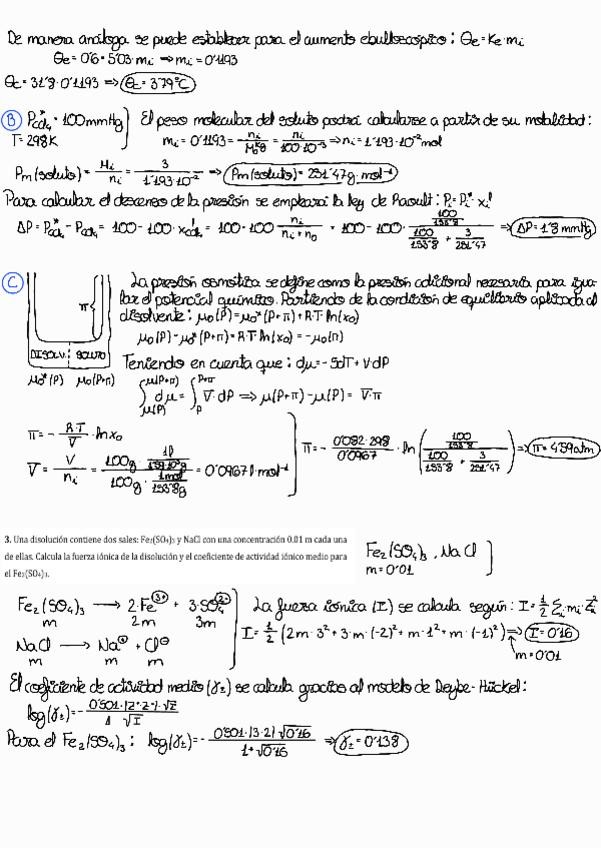 De manera análoga se puede establecer para el aumento ebulloscópico: θe = Ke·mi
θe = 0'6 = 5'03·mi ⇒ mi = 0'1193
θc = 31'8·0'1193 ⇒ θc = 3'79°C
B) P*ccl4 = 100 mmHg
T = 298K
El peso molecular del soluto podrá calcularse a partir de su molalidad:
mi = 0'1193 = ni/M = ni/100·10⁻³ ⇒ ni = 1'193·10⁻² mol
Pm(soluto) = Mi/ni = 3/1'193·10⁻² ⇒ Pm(soluto) = 251'47 g·mol⁻¹
Para calcular el descenso de la presión se empleará la ley de Raoult: Pi = Pi*·xi^l
ΔP = P*ccl4 - Pccl4 = 100 - 100·x^l ccl4 = 100 - 100 ni/ni+n0 = 100 - 100· (100/153'8)/(100/153'8 + 3/251'47) ⇒ ΔP = 1'8 mmHg
C) La presión osmótica se define como la presión adicional necesaria para igua-
lar el potencial químico. Partiendo de la condición de equilibrio aplicada al
disolvente: μ0(P) = μ0*(P+π) + R·T·ln(x0)
π
μ0(P) - μ0*(P+π) = R·T·ln(x0) = -μ0(π)
DISOLV. SOLUTO
μ0*(P) μ0(P+π)
Teniendo en cuenta que: dμ = -SdT + VdP
∫μ(P)^μ(P+π) dμ = ∫P^P+π V̄·dP ⇒ μ(P+π) - μ(P) = V̄·π
π = - R·T/V̄ · ln x0
V̄ = V/ni = 0'0967 l·mol⁻¹
π = - 0'082·298/0'0967 · ln((100/153'8)/(100/153'8 + 3/251'47)) ⇒ π = 4'59 atm
3. Una disolución contiene dos sales: Fe₂(SO₄)₃ y NaCl con una concentración 0.01 m cada una
de ellas. Calcula la fuerza iónica de la disolución y el coeficiente de actividad iónico medio para
el Fe₂(SO₄)₃.
Fe₂(SO₄)₃, NaCl
m = 0'01
Fe₂(SO₄)₃ → 2·Fe³⁺ + 3·SO₄²⁻
m 2m 3m
NaCl → Na⁺ + Cl⁻
m m m
La fuerza iónica (I) se calcula según: I = 1/2 Σi mi·zi²
I = 1/2 (2m·3² + 3·m·(-2)² + m·1² + m·(-1)²) ⇒ I = 0'16
m = 0'01
El coeficiente de actividad medio (γ±) se calcula gracias al modelo de Deybe-Hückel:
log(γ±) = - 0'501·|z⁺·z⁻|·√I / 1 + √I
Para el Fe₂(SO₄)₃: log(γ±) = - 0'501·|3·2|·√0'16 / 1+√0'16 ⇒ γ± = 0'138